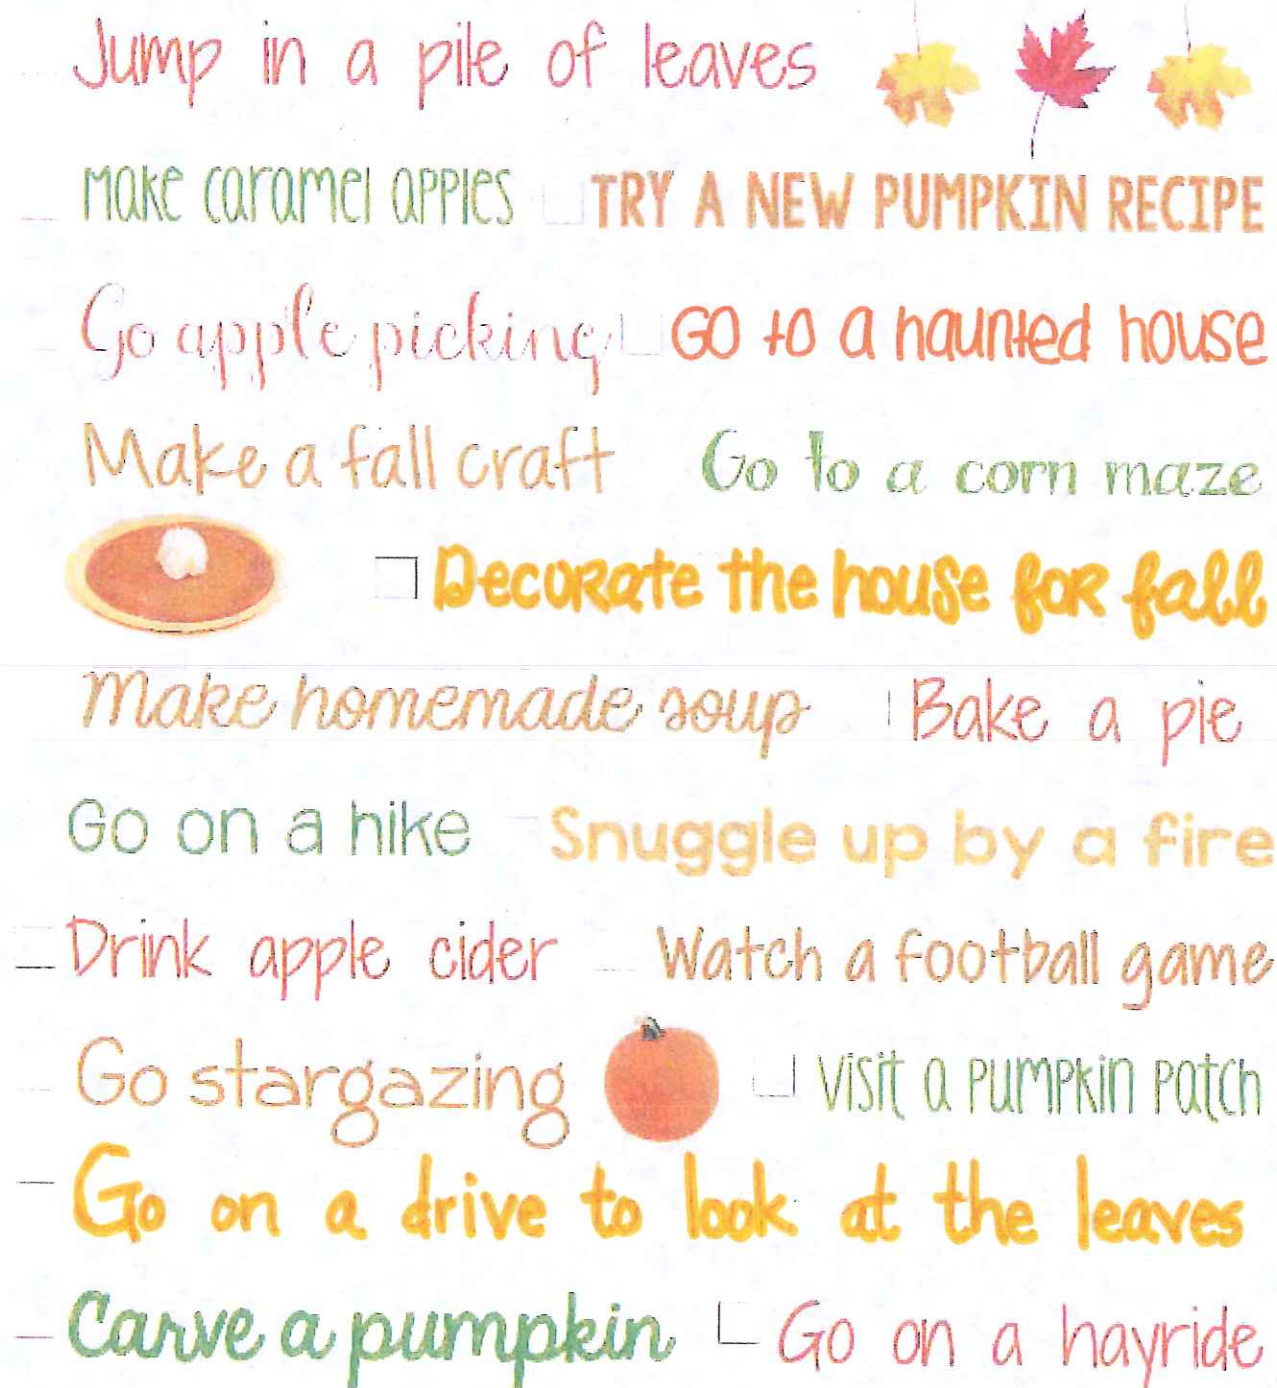 Jump in a pile of leaves
Make caramel apples TRY A NEW PUMPKIN RECIPE
Go apple picking Go to a haunted house
Make a fall craft Go to a corn maze
Decorate the house for fall
Make homemade soup Bake a pie
Go on a hike Snuggle up by a fire
Drink apple cider Watch a football game
Go stargazing Visit a pumpkin patch
Go on a drive to look at the leaves
Carve a pumpkin Go on a hayride